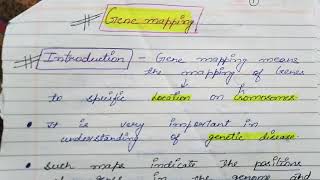 Gene mapping
Introduction - Gene mapping means
the mapping of Genes
to specific location on chromosomes.
• It is very important in
understanding of genetic disease.
• Such maps indicate the positions
of genes in the genome and